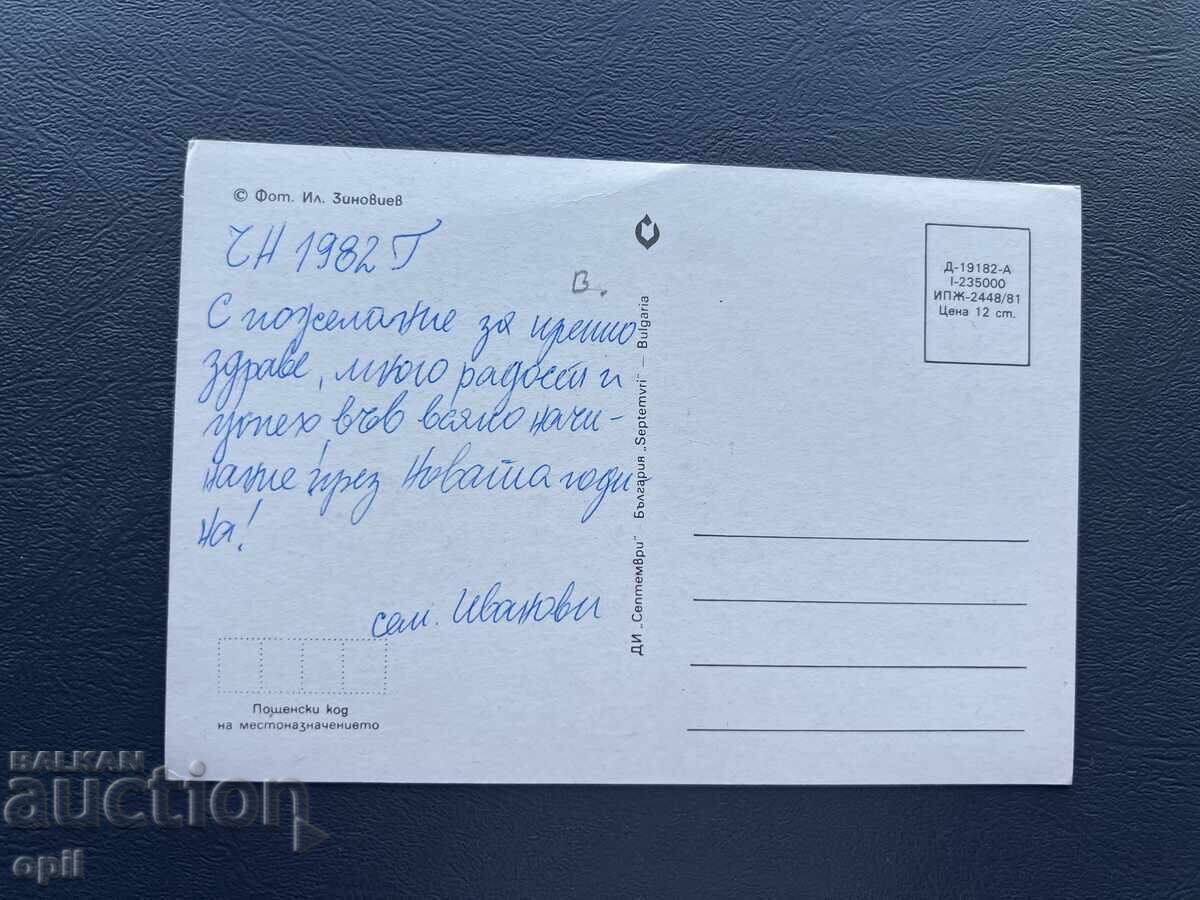 © Фот. Ил. Зиновиев
ЧН 1982 Г
В.
С пожелание за крепко
здраве, много радости и
успех във всяко начи-
нание през Новата годи-
на!
сем. Иванови
Пощенски код
на местоназначението
ДИ „Септември" – България „Septemvri" – Bulgaria
Д-19182-А
I-235000
ИПЖ-2448/81
Цена 12 ст.
BALKAN
auction
opil